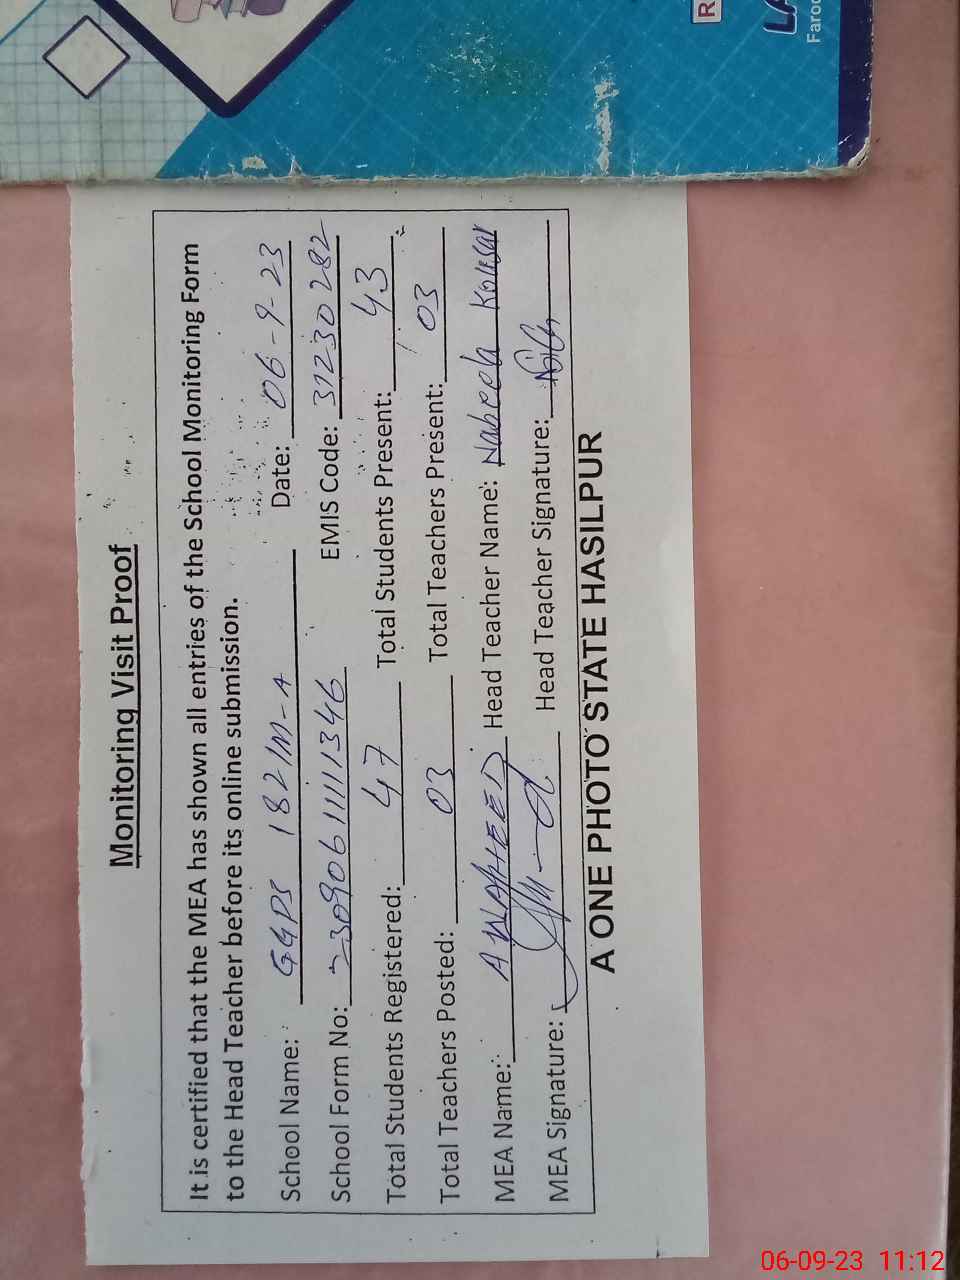 Monitoring Visit Proof
It is certified that the MEA has shown all entries of the School Monitoring Form
to the Head Teacher before its online submission.
School Name: GGPS 182/M-A Date: 06-9-23
School Form No: 23090611111346 EMIS Code: 31230282
Total Students Registered: 47 Total Students Present: 43
Total Teachers Posted: 03 Total Teachers Present: 03
MEA Name: A WAHEED Head Teacher Name: Nabeela Kousar
MEA Signature: Head Teacher Signature:
A ONE PHOTO STATE HASILPUR
R
LA
Faroo
06-09-23 11:12